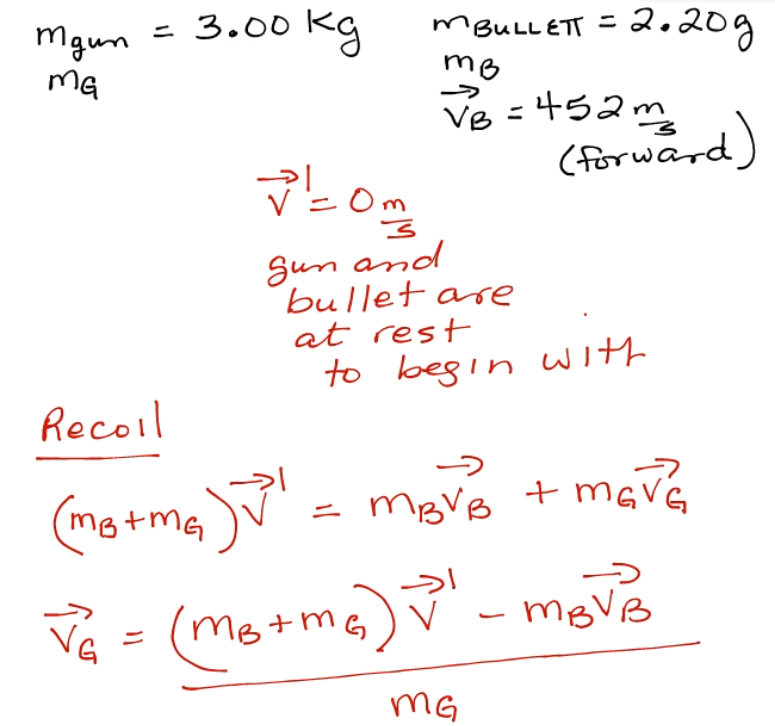 m_gun = 3.00 kg
m_G
m_BULLETT = 2.20g
m_B
v⃗_B = 452 m/s
(forward)
v⃗' = 0 m/s
gun and
bullet are
at rest
to begin with
Recoil
(m_B + m_G) v⃗' = m_B v⃗_B + m_G v⃗_G
v⃗_G = ((m_B + m_G) v⃗' - m_B v⃗_B) / m_G